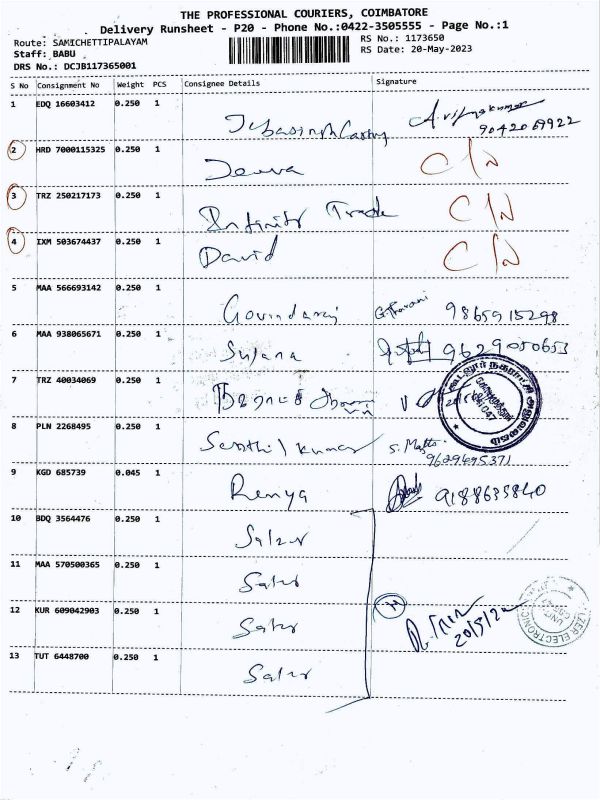 THE PROFESSIONAL COURIERS, COIMBATORE
Delivery Runsheet - P20 - Phone No.:0422-3505555 - Page No.:1
Route: SAMICHETTIPALAYAM RS No.: 1173650
Staff: BABU RS Date: 20-May-2023
DRS No.: DCJB117365001
S No Consignment No Weight PCS Consignee Details Signature
1 EDQ 16603412 0.250 1
9042069922
2 HRD 7000115325 0.250 1
3 TRZ 250217173 0.250 1 Infinity Trade
4 IXM 503674437 0.250 1 David
5 MAA 566693142 0.250 1 Govindaraj 9865915298
6 MAA 938065671 0.250 1 Sujana 9629050653
7 TRZ 40034069 0.250 1
8 PLN 2268495 0.250 1 Senthil kumar
9629695371
9 KGD 685739 0.045 1 Renya 9188635840
10 BDQ 3564476 0.250 1 Salzer
11 MAA 570500365 0.250 1 Salzer
12 KUR 609042903 0.250 1 Salzer
20/5/2
13 TUT 6448700 0.250 1 Salzer